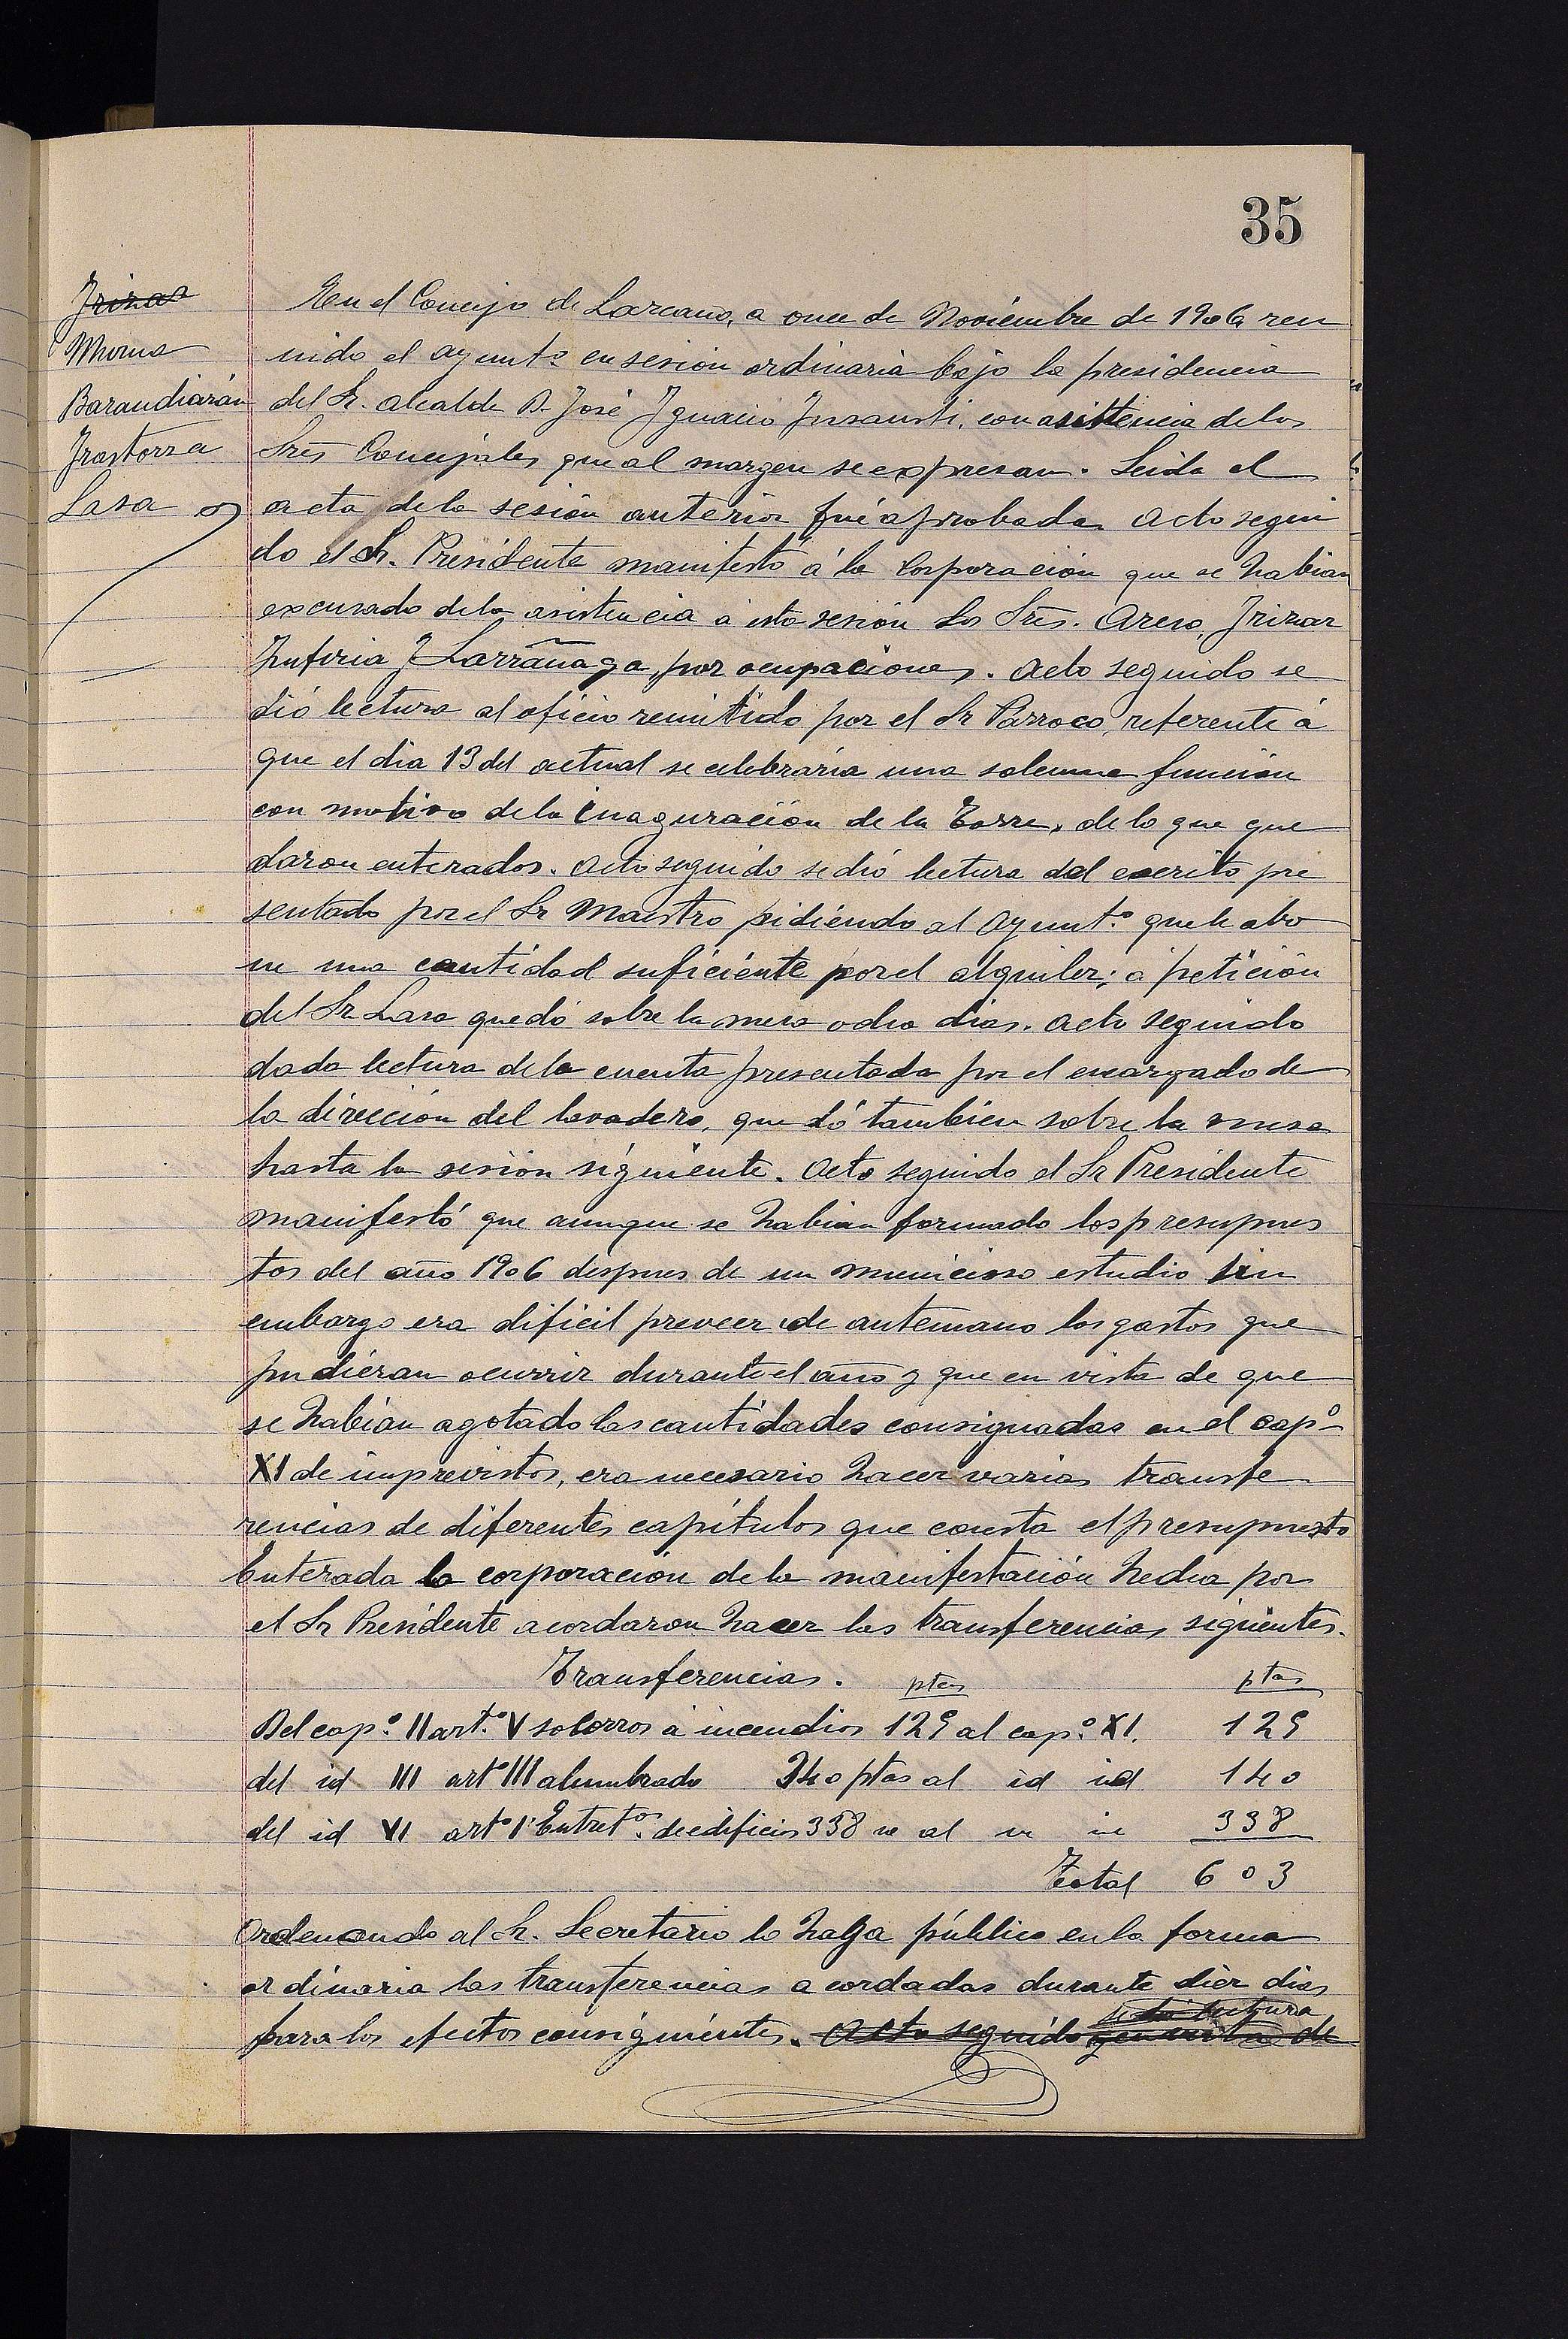 35
Irizar
Murua
Barandiarán
Irastorza
Lasa
En el Concejo de Lazcano, a once de Noviembre de 1906 reu
nido el ayunt.º en sesión ordinaria bajo la presidencia
del Sr. alcalde D. José Ignacio Insausti, con asistencia de los
Sres Concejales que al margen se expresan. Leida el
acta de la sesión anterior fué aprobada. Acto segui
do el Sr. Presidente manifestó á la Corporación que se habian
excusado de la asistencia a esta sesión los Sres. Areso, Irizar
y Larrañaga, por ocupaciones. Acto seguido se
dió lectura al oficio remitido por el Sr Parroco, referente á
que el dia 13 del actual se celebraria una solemne función
con motivo de la inaguración de la Torre, de lo que que
daron enterados. Acto seguido se dió lectura del escrito pre
sentado por el Sr Maestro pidiendo al Ayunt.º que le abo
ne una cantidad suficiente por el alquiler; a petición
del Sr Lasa quedó sobre la mesa ocho dias. Acto seguido
dada lectura de la cuenta presentada por el encargado de
la dirección del lavadero, quedó tambien sobre la mesa
hasta la sesión siguiente. Acto seguido el Sr Presidente
manifestó que aunque se habian formado los presupues
tos del año 1906 despues de un municioso estudio sin
embargo era dificil preveer de antemano los gastos que
pudieran ocurrir durante el año y que en vista de que
se habian agotado las cantidades consignadas en el capº
XI de imprevistos, era necesario hacer varias transfe
rencias de diferentes capítulos que consta el presupuesto
Enterada la corporación de la manifestación hecha por
el Sr Presidente acordaron hacer las transferencias siguientes.
Transferencias. ptas ptas
Del cap.º II art.º V socorros a incendios 125 al cap.º XI. 125
del id III artº III alumbrado 140 ptas al id id 140
del id VI artº I Entretº. de edificios 338 al 338
Total 603
Ordenando al Sr. Secretario lo haga público en la forma
ordinaria las transferencias acordadas durante diez dias
se dió lectura
para los efectos consiguientes. Acto seguido de